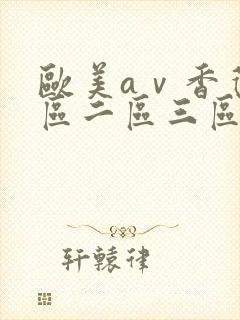 歐美av香
區二區三區
轩辕律